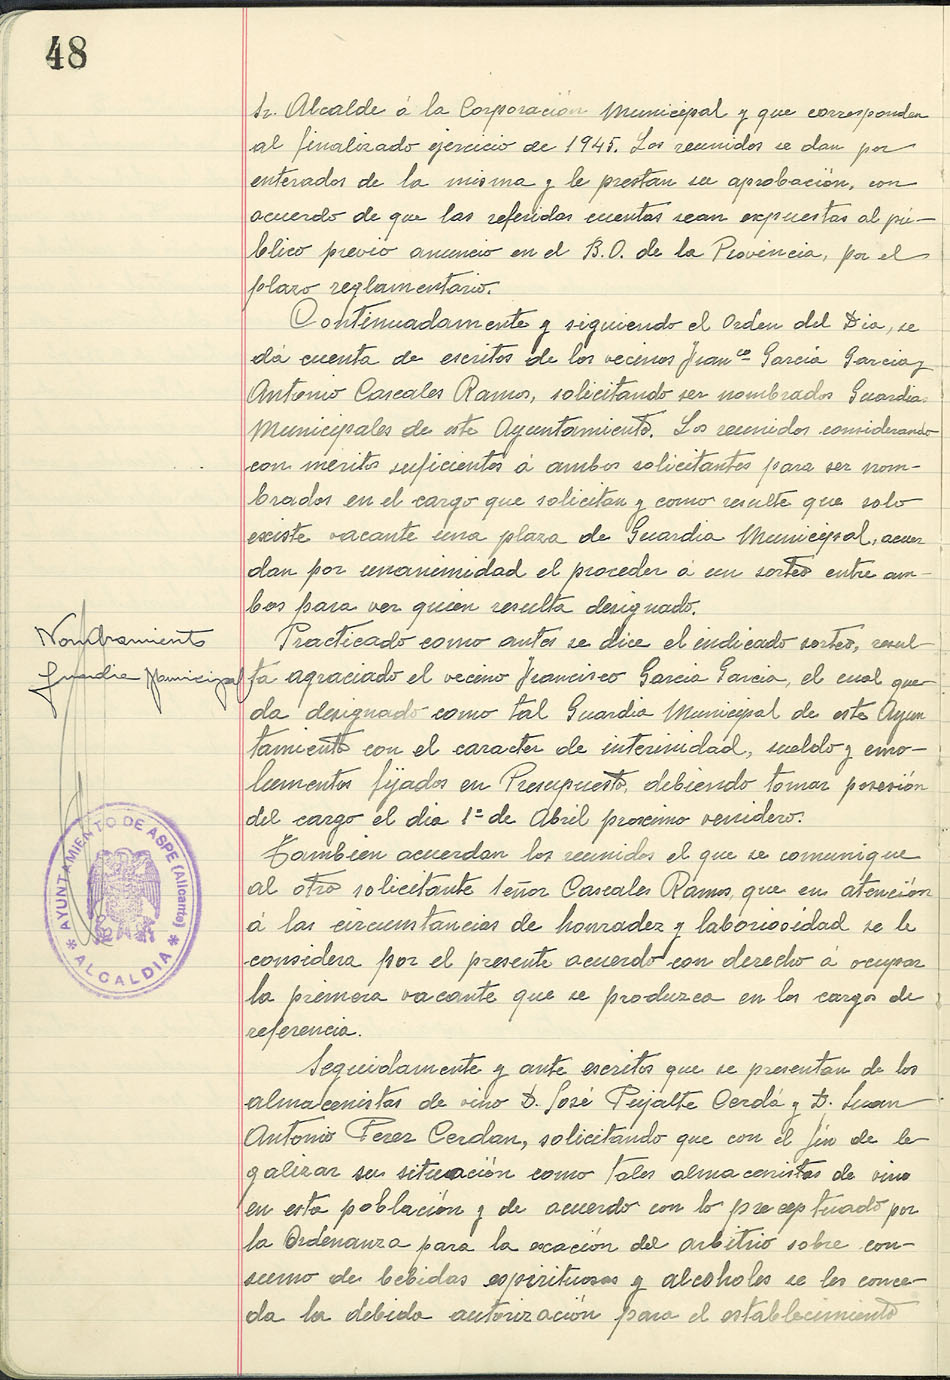 48
Sr. Alcalde á la Corporación Municipal y que corresponden
al finalizado ejercicio de 1945. Los reunidos se dan por
enterados de la misma y le prestan su aprobación, con
acuerdo de que las referidas cuentas sean expuestas al pú-
blico previo anuncio en el B.O. de la Provincia, por el
plazo reglamentario.
Continuadamente y siguiendo el Orden del Dia, se
dá cuenta de escritos de los vecinos Franco García Garcia y
Antonio Cascales Ramos, solicitando ser nombrados Guardias
Municipales de este Ayuntamiento. Los reunidos considerando
con meritos suficientes á ambos solicitantes para ser nom-
brados en el cargo que solicitan y como resulte que solo
existe vacante una plaza de Guardia Municipal, acuer
dan por unanimidad el proceder á un sorteo entre am-
bos para ver quien resulta designado.
Nombramiento
Guardia Municipal
Practicado como antes se dice el indicado sorteo, resul-
ta agraciado el vecino Francisco García Garcia, el cual que-
da designado como tal Guardia Municipal de este Ayun
tamiento con el caracter de interinidad, sueldo y emo-
lumentos fijados en Presupuesto, debiendo tomar posesión
del cargo el dia 1º de Abril proximo venidero.
Tambien acuerdan los reunidos el que se comunique
al otro solicitante señor Cascales Ramos, que en atención
á las circunstancias de honradez y laboriosidad se le
considera por el presente acuerdo con derecho á ocupar
la primera vacante que se produzca en los cargos de
referencia.
AYUNTAMIENTO DE ASPE (Alicante)
* ALCALDIA *
Seguidamente y ante escritos que se presentan de los
almacenistas de vino D. José Pujalte Cerdá y D. Juan
Antonio Perez Cerdan, solicitando que con el fin de le-
galizar su situación como tales almacenistas de vino
en esta población y de acuerdo con lo preceptuado por
la Ordenanza para la exación del arbitrio sobre con-
sumo de bebidas espirituosas y alcoholes se les conce-
da la debida autorización para el establecimiento